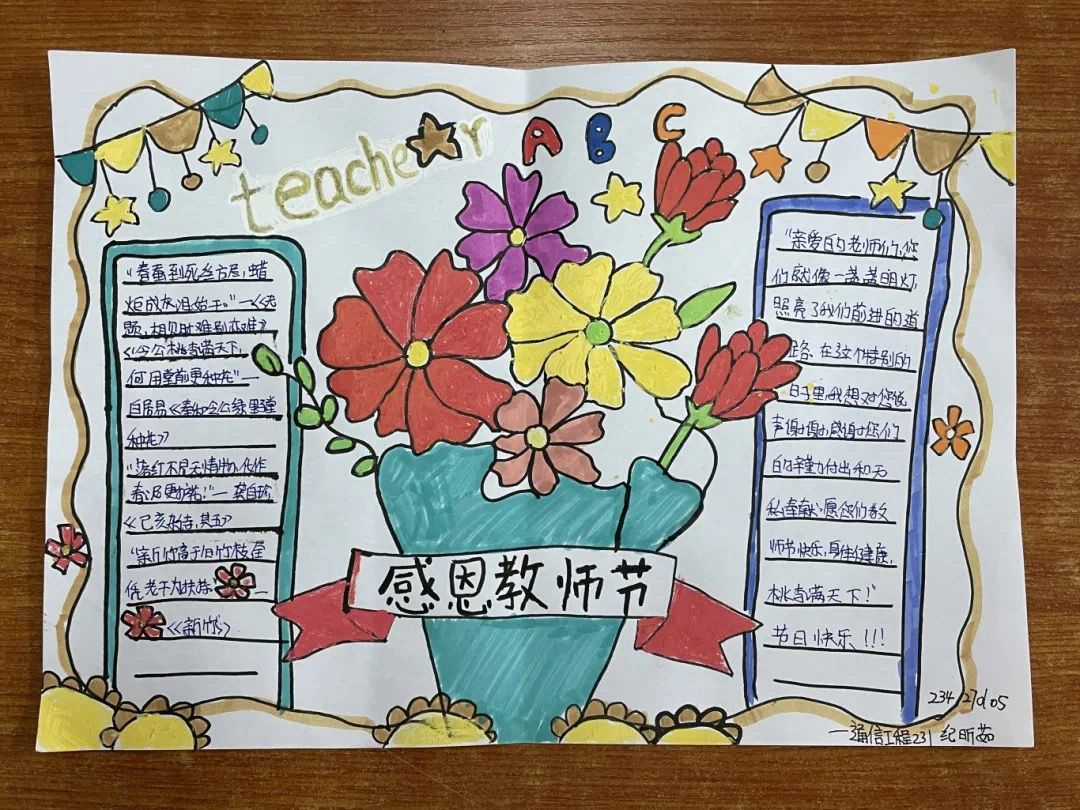 teacher
A B C
"春蚕到死丝方尽,蜡
炬成灰泪始干。"—《无
题·相见时难别亦难》
《令公桃李满天下,
何用堂前更种花"—
白居易《奉和令公绿野堂
种花》
"落红不是无情物,化作
春泥更护花!"—龚自珍
《己亥杂诗·其五》
"新竹高于旧竹枝全
凭老干为扶持。—
《新竹》
感恩教师节
"亲爱的老师们,您
们就像一盏盏明灯,
照亮了我们前进的道
路.在这个特别的
日子里,我想对您说
声谢谢,感谢您们
的辛勤付出和无
私奉献.愿您们教
师节快乐,身体健康,
桃李满天下!"
节日快乐!!!
—通信工程231 纪昕茹